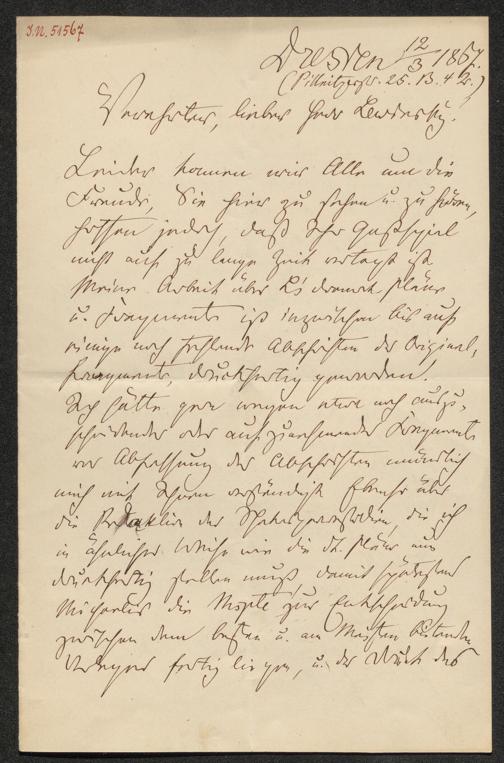 J.N. 51567
Dresden 12/3 1867.
(Pillnitzerstr. 25. B. 4 Tr.)
Verehrter, lieber Herr Lewinsky!
Leider kommen wir Alle um die
Freude, Sie hier zu sehen u. zu hören,
hoffen jedoch, daß Ihr Gastspiel
nicht auf zu lange Zeit vertagt ist
Meine Arbeit über L's dramat. Pläne
u. Fragmente ist inzwischen bis auf
einige noch fehlende Abschriften der Original-
fragmente, druckfertig geworden.
Ich hätte gern wegen etwa noch auszu-
scheidender oder aufzunehmender Fragmente
vor Abfassung der Abschriften mündlich
mich mit Ihnen verständigt Ebenso über
die Redaktion der Shakespearestudien, die ich
in ähnlicher Weise wie die dr. Pläne nun
druckfertig stellen muß, damit spätestens
Michaelis die Mspte zur Entscheidung
zwischen dem besten u. am Meisten bietenden
Verleger fertig liegen, u. der Druck des